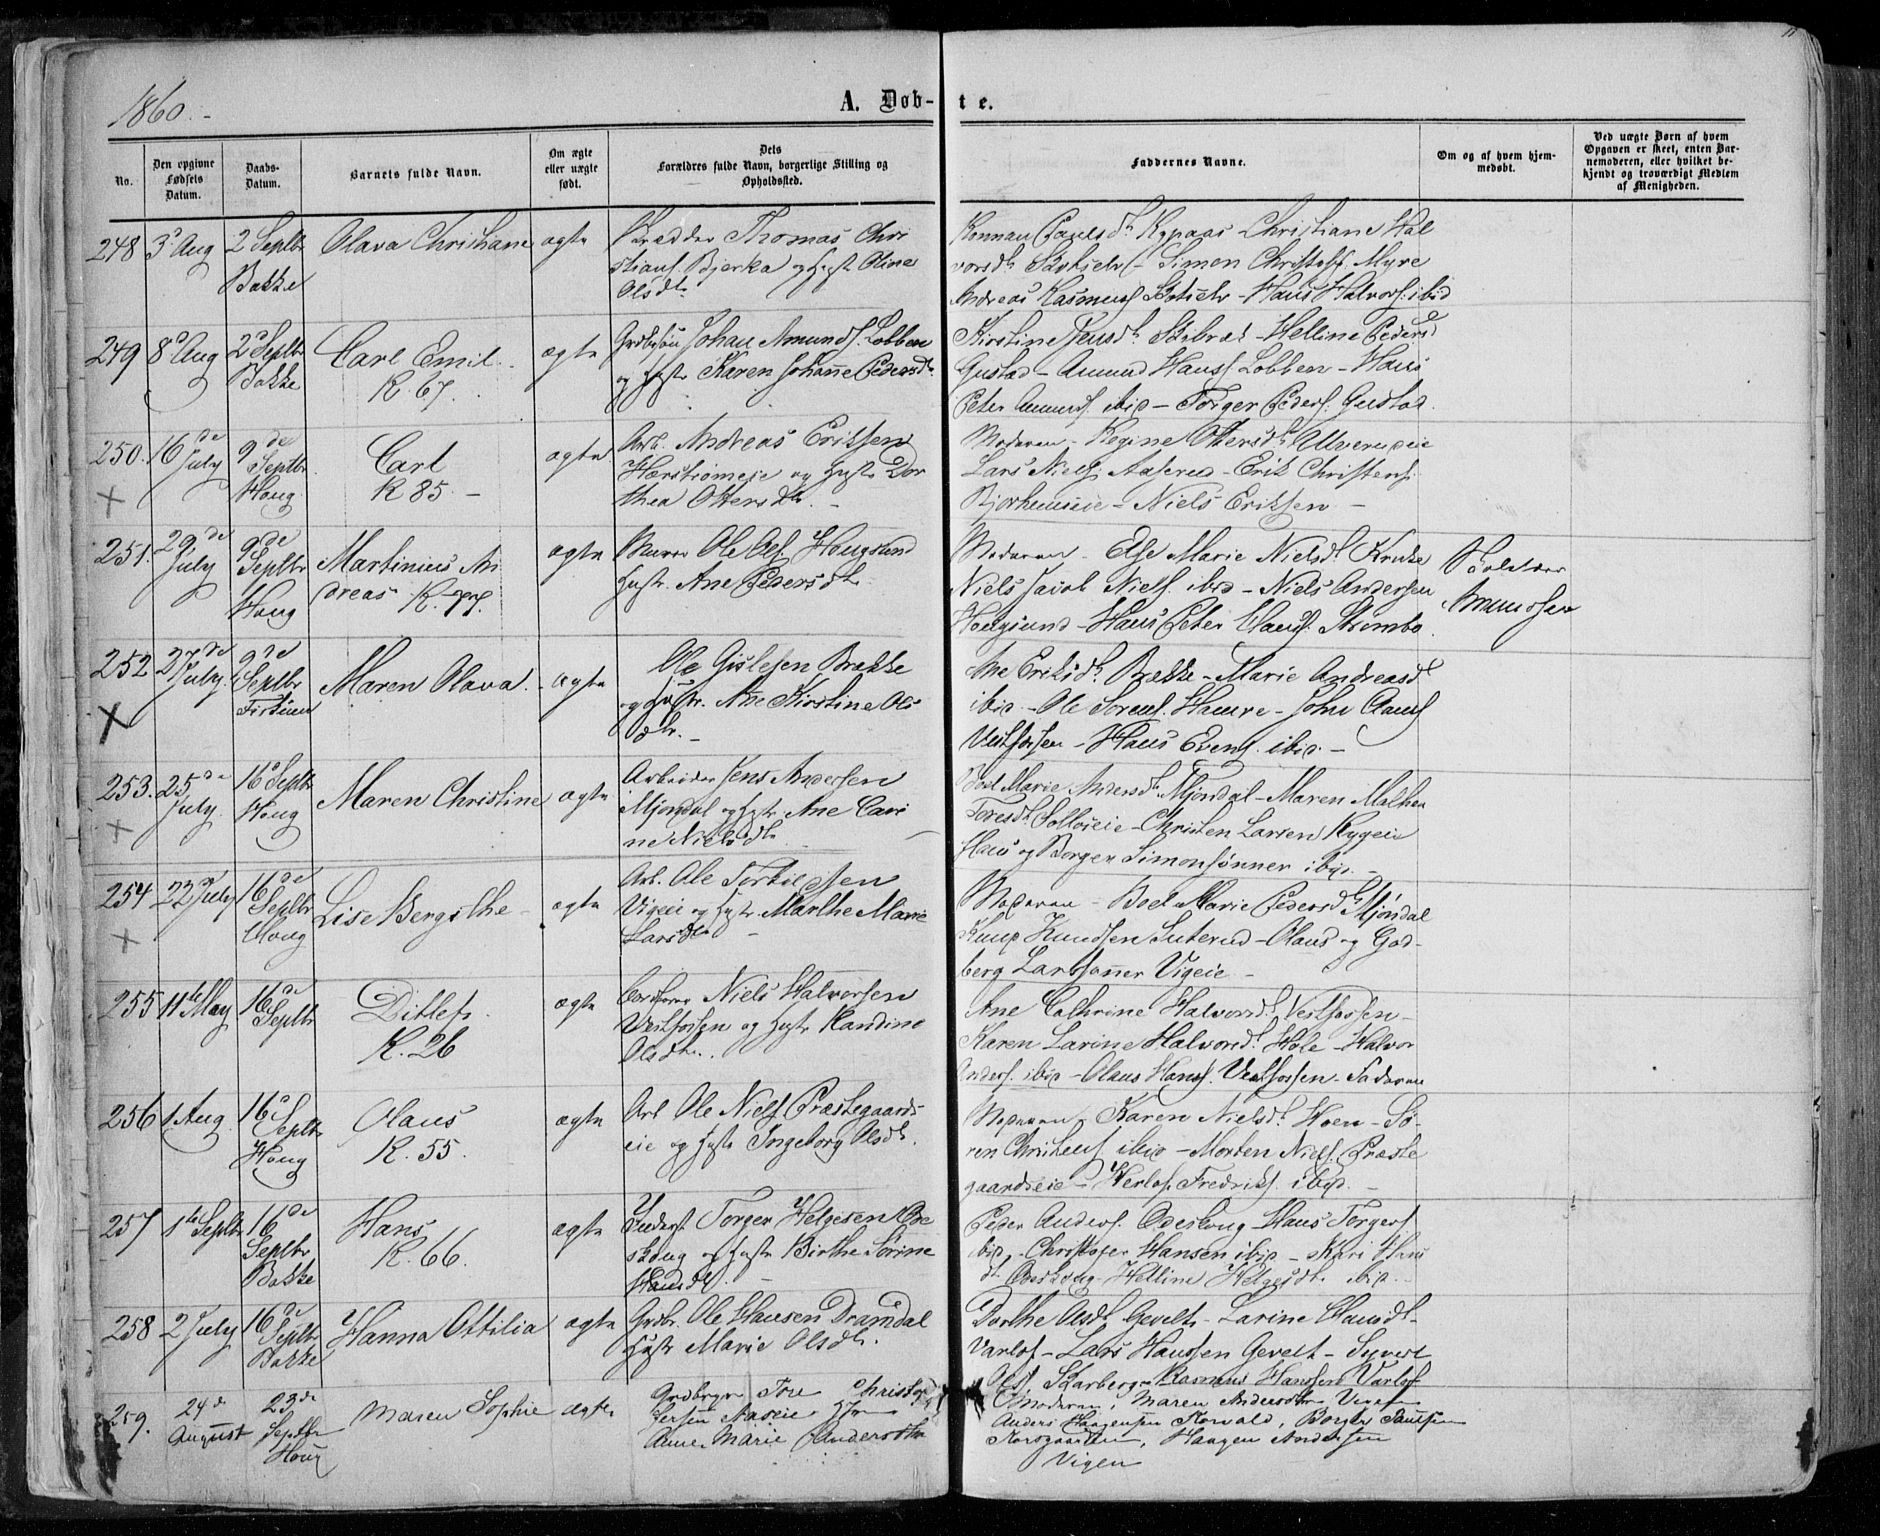 1860.
A. Døb-te.
No.
Den opgivne Fødsels Datum.
Daabs-Datum.
Barnets fulde Navn.
Om ægte eller uægte født.
Dets Forældres fulde Navn, borgerlige Stilling og Opholdssted.
Faddernes Navne.
Om og af hvem hjemmedøbt.
Ved uægte Børn af hvem Opgaven er skeet, enten Barnemoderen, eller hvilket bekjendt og troværdigt Medlem af Menigheden.
248 3d Aug 2 Septbr Bakke Olava Christiane ægte
Thomas Chri
stians. Bjerka og Hustr Oline
Olsdtr.
Christiane Hal
vorsdtr - Simon Christoffs. Myre
Andreas Rasmuss - Hans Halvors. ibid
249 8d Aug 2d Septbr Bakke Carl Emil. K. 67. ægte
Johan Amunds. Lobben
og Hustr Karen Johanne Pedersdtr
Kirstine Jensdtr - Helline Pedersd
Gustad - Amund Hanss Lobben - Hans
Peter Amunds. ibid - Torger Peders. Gustad.
250. 16de July 9de Septbr Houg Carl K 85. - ægte
Arb. Andreas Eriksen
og Hustr Dor
thea Ottersdtr. -
Moderen - Regine Ottersdtr
Lars Niels. Aaserud - Erik Christens.
- Niels Eriksen -
251. 29de July 9de Septbr Houg Martinius An
dreas K. 77. ægte
Murer Ole Ols. Hougsund
Hustr. Ane Pedersdtr.
Moderen - Else Marie Nielsdtr. Kruke
Niels Jacob Niels. ibid - Niels Andersen
Hougsund - Hans Peter Claus. Strømbo.
Amundsen
252 27de July. 9de Septbr Fiskum Maren Olava. ægte
Ole Gislesen Brække
og Hustr. Ane Kirstine Ols
dtr. -
Ane Eriksdtr. Brække - Marie Andreasdtr
ibid. - Ole Sorens. Hamre - John
Vestfossen - Hans Evens. ibid. -
253. 25de July. 16d Septbr Houg Maren Christine ægte
Arbeider Jens Andersen
Mjøndal og Hustr Ane Cari
ne Nielsdtr
Boel Marie Andersdtr. Mjøndal - Maren Mathea
Toresdtr. Solloseie - Christen Larsen Rygeie
Hans og Borger Simonsønner ibid. -
254 22de July 16de Septbr Houg Lise Bergithe - ægte
Arb. Ole Torkildsen
Vigeie og Hustr. Marthe Marie
Larsdtr -
Moderen - Boel Marie Pedersdtr Mjøndal
Knud Knudsen Suterud - Olaus og Gud-
berg Larssønner Vigeie -
255 11te May 16de Septbr Ditlef. K. 26 ægte
Niels Halvorsen
Vestfossen og Hustr Randine
Olsdtr.
Ane Cathrine Halvorsdtr. Vestfossen -
Karen Larine Halvorsdtr. Hole - Halvor
Anders. ibid - Olaus Hans. Vestfossen - Faderen
256 1 Aug 16d Septbr Houg Olaus K. 55. ægte
Arb Ole Niels. Præstegaards-
eie og Hustr Ingeborg Olsdtr.
Moderen, Karen Nielsdtr. Hoen - Sø-
ren Christens. ibid - Morten Niels. Præste
gaardseie - Herlof Fredriks. ibid. -
257 1te Septbr 16de Septbr Bakke Hans K. 66. ægte
Inderst. Torger Helgesen Ode
skoug og Hustr Birthe Sørine
Hansdtr -
Peder Anders. Odeskoug Hans Torgers
ibid, - Christofer Hansen ibid - Kari Hans
dtr. Odeskoug - Helline Helgesdtr. ibid.
258 2 July 16de Septbr Bakke Hanna Ottilia ægte
Grdbr. Ole Hansen Dramdal
Hustr Marie Olsdtr.
Dorthe Olsdtr. Gevelt - Larine Hansdtr.
Varlof - Lars Hanssen Gevelt - Syvert
Ols. Skarberg - Rasmus Hanssen Varlof
259. 24d August 23de Septbr Houg Maren Sophie ægte
Gaardbryger Tore Christof
fersen Aaseie Hstr
Anne Marie Andersdtr
Moderen, Maren Andersdtr Vigen
Anders Haagensen Korvald, Borger Paulsen
Korsgaarden, Haagen Andersen
Vigen